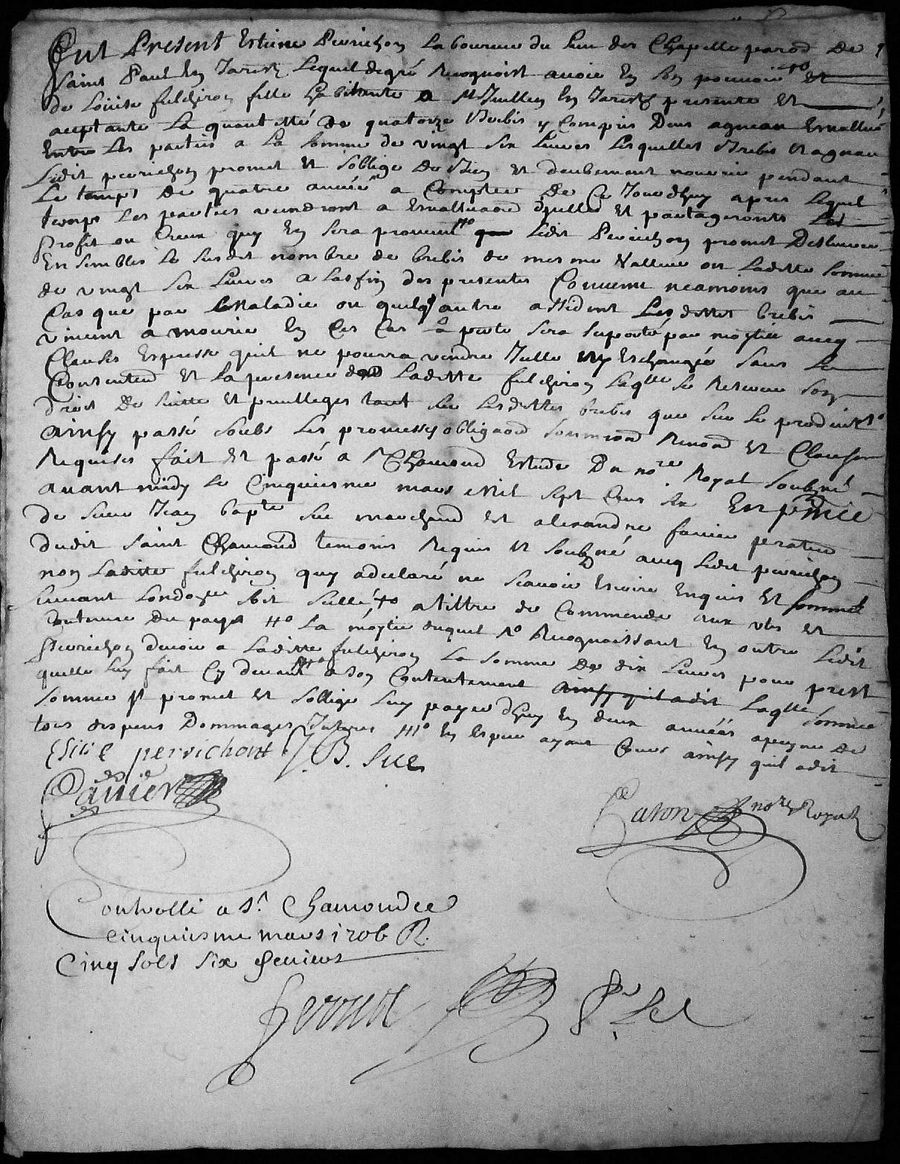 Fut Present Estiene Perrichon Laboureur du lieu des Chapelle parois. De
Saint Paul En Jarest Lequel de gré Recognoist avoir En Son pouvoir et
de Louise fulchiron fille habitante a St Jullien En Jarest presente Et
aceptante La quantitté De quatorze brebis y Compris Deux agneau Evalluée
Entre Les parties a La Somme de vingt Six Livres Lesquelles brebis Et agneau
Ledit perrichon promet Et Soblige De bien Et deubement nourrir pendant
Le temps De quatre année a Compter De Ce Jourdhuy apres Lequel
temps Les parties viendront a Et partageronts Les
profit ou Creux quy En Sera provenu Ledit Perrichon promet De
Ensembles Le Susdit nombre de brebis de mesme Valleur ou Laditte Somme
de vingt Six Livres a La fin des presentes Convenu neamoins que au
Cas que par Maladie ou quelq autre accident Lesdittes brebis
vinsent a mourir En Ces Cas La perte Sera Suporté par moytié avecq
Clauses Expresse quil ne pourra vendre Eschanger Sans Le
Et La presence de Laditte fulchiron Laqlle Se Reserve Son
droit De Suitte Et privilleges tant Sur Lesdittes brebis que Sur Le produit
Ainsy passé Soubs Les promesses obligaon Soumission Renon Et Clauses
Requises fait Et passé a St Chamond Estude Du nore Royal Soubné
avant midy Le Cinquiesme mars Mil Sept Cens Six En pnce
de Sieur Jean bapte Sue marchand Et alexandre favier praticien
dudit Saint Chamond temoins Requis Et Soubné avecq Ledit perrichon
non Laditte fulchiron quy a declaré ne Scavoir Escrire Enquis Et Sommé
Suivant Lordonce Soit a tiltre de Commende aux us Et
Coutume Du pays La moytie duquel Recognaissant En outre Ledit
Perrichon devoir a Laditte fulchiron La Somme De dix Livres pour prest
quelle Luy fait Cy devant a Son Contentement ainsy quil a dit Laqlle Somme
Somme Il promet Et Soblige Luy payer dhuy En deux années apeyne de
tous despens Dommages Interes En Espece ayant Cours ainsy quil a dit
Estiè perrichont J. B. Sue
favier
Raton nore Royal
Controllé a St Chamond Le
cinquiesme mars 1706 R.
Cinq Sols Six deniers